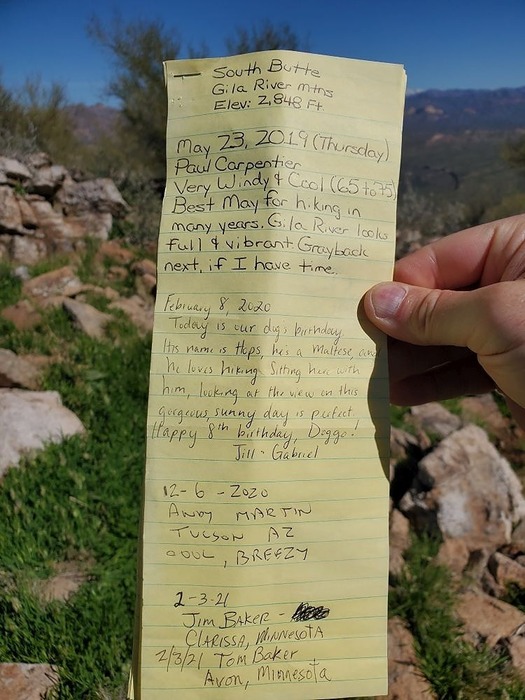 South Butte
Gila River mtns
Elev: 2,848 Ft.
May 23, 2019 (Thursday)
Paul Carpentier
Very Windy & Cool (65 to 75)
Best May for hiking in
many years. Gila River looks
full & vibrant Grayback
next, if I have time.
February 8, 2020
Today is our dog's birthday.
His name is Hops, he's a Maltese, and
he loves hiking. Sitting here with
him, looking at the view on this
gorgeous, sunny day is perfect
Happy 8th birthday, Doggo!
Jill - Gabriel
12-6-2020
ANDY MARTIN
TUCSON AZ
COOL, BREEZY
2-3-21
JIM BAKER -
CLARISSA, MINNESOTA
2/3/21 TOM Baker
Avon, Minnesota